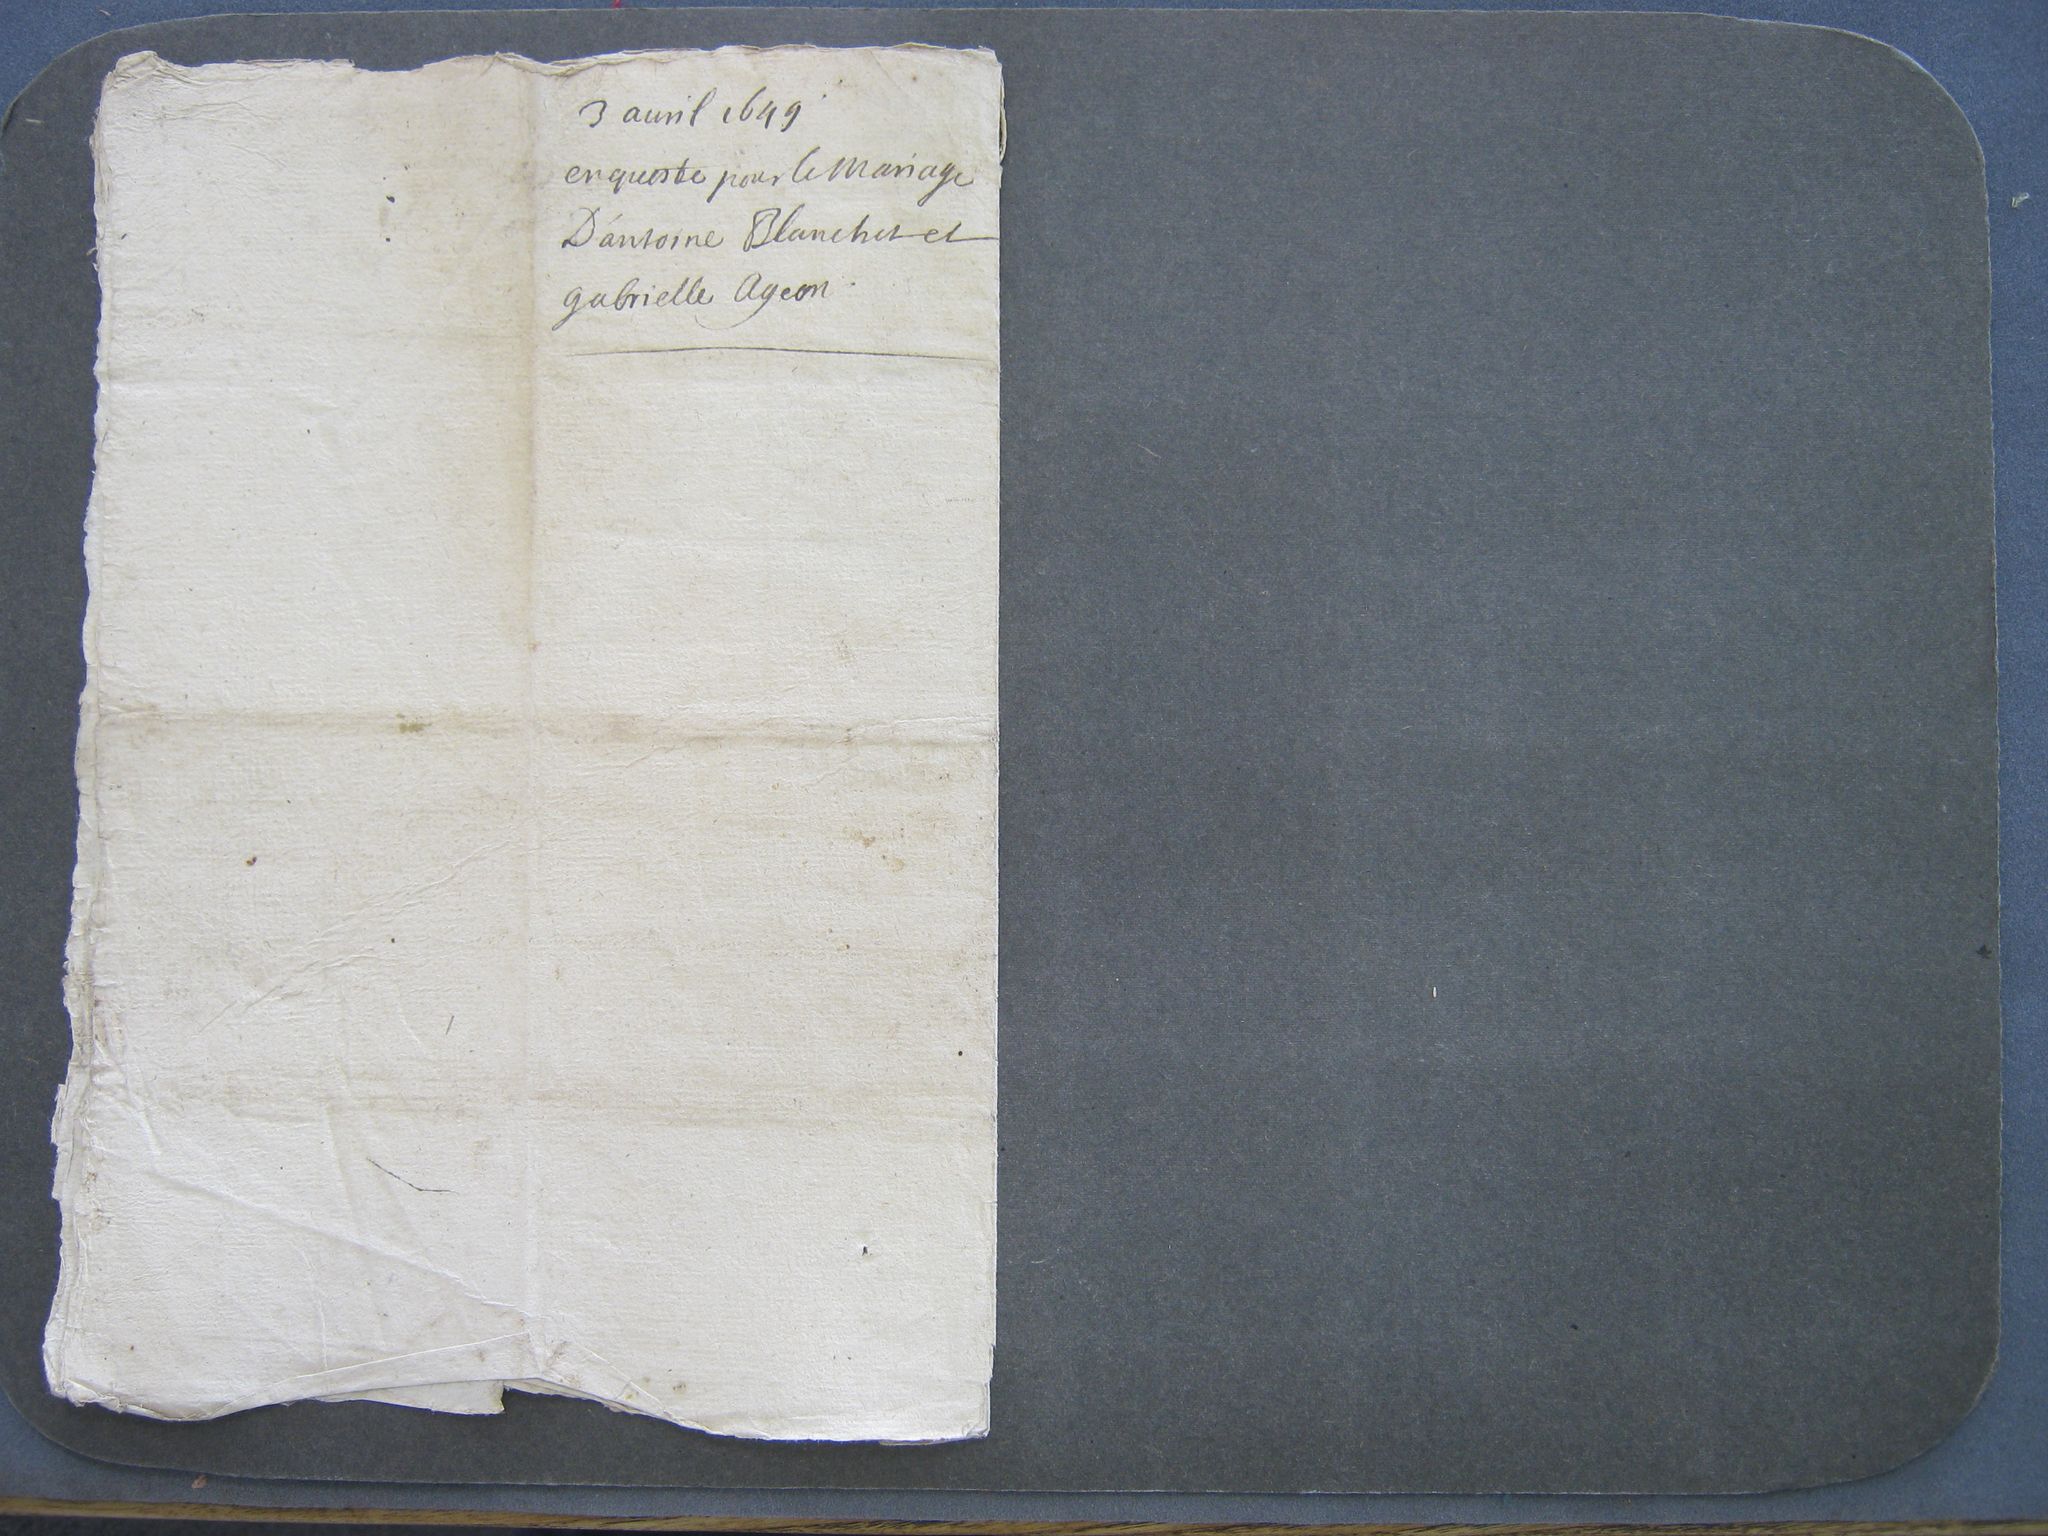 3 auril 1649
enqueste pour le Mariage
D'antoine Blanchet et
gabrielle Ageon